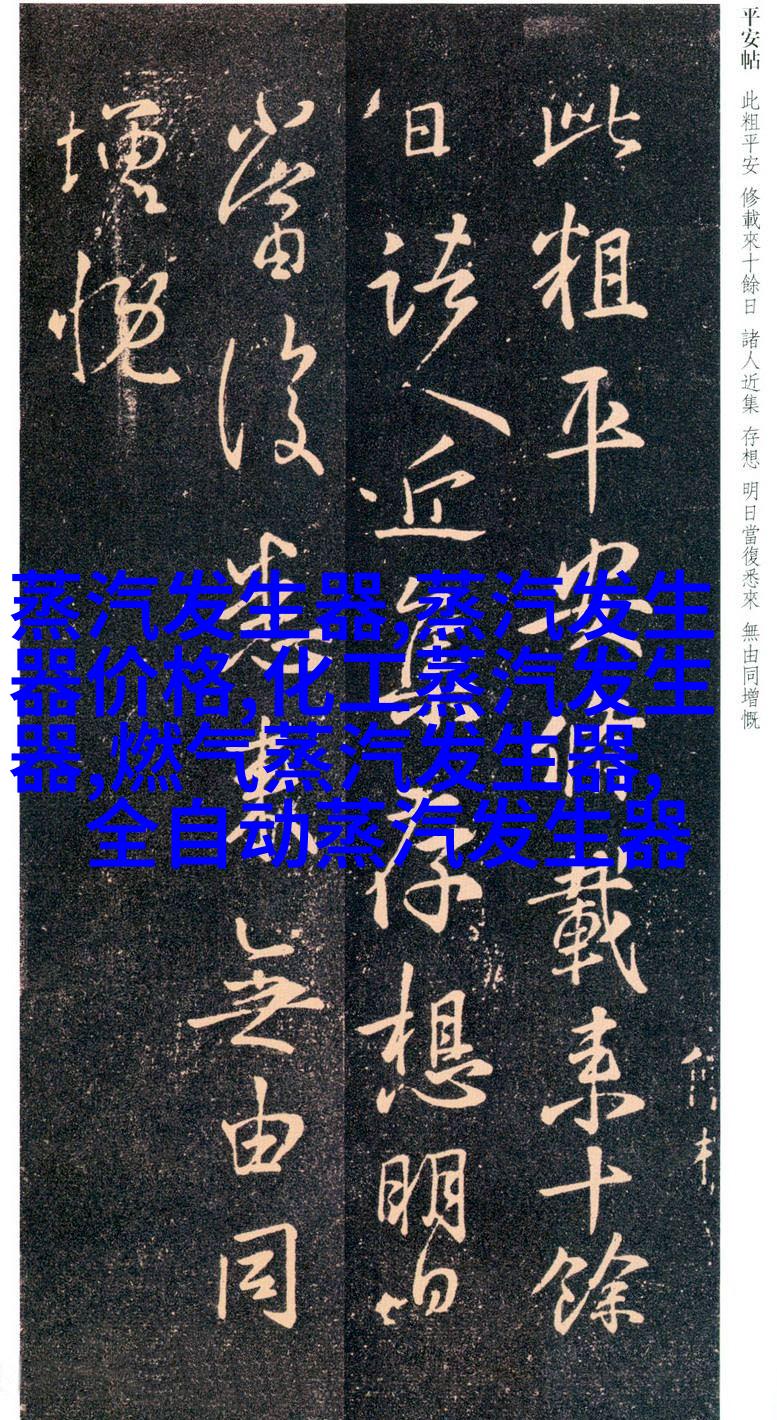 平安帖 此粗平安 修載來十餘日 諸人近集 存想 明日當復悉來 無由同增慨
此粗平安修載来十餘
日諸人近集存想明日
當復悉来無由同
增慨
蒸汽发生器,蒸汽发生
器价格,化工蒸汽发生
器,燃气蒸汽发生器,
全自动蒸汽发生器